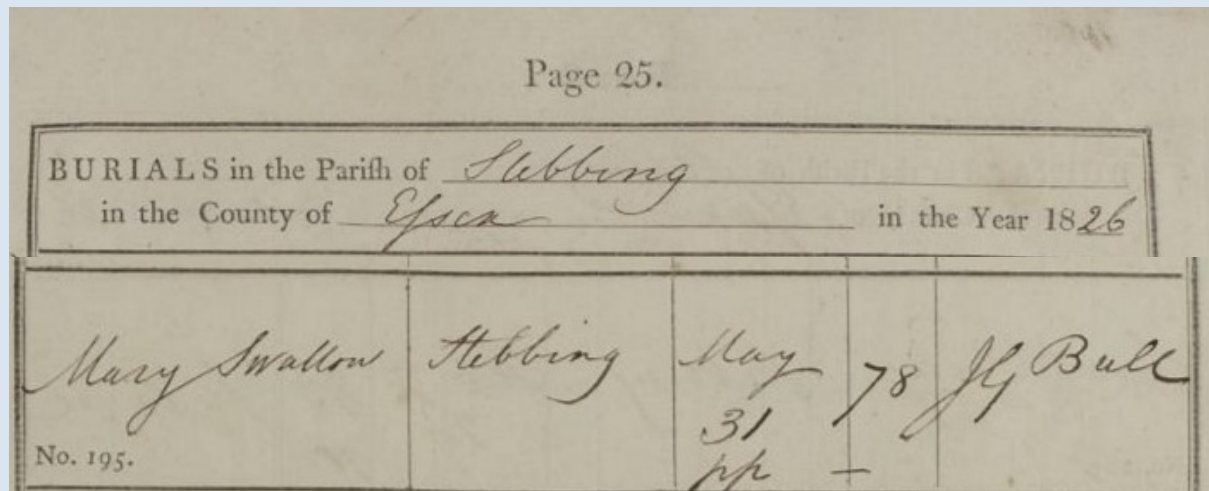 Page 25.
BURIALS in the Pariſh of Stebbing
in the County of Eſsex in the Year 1826
Mary Swallow Stebbing May 31 pp 78 — JG Bull
No. 195.